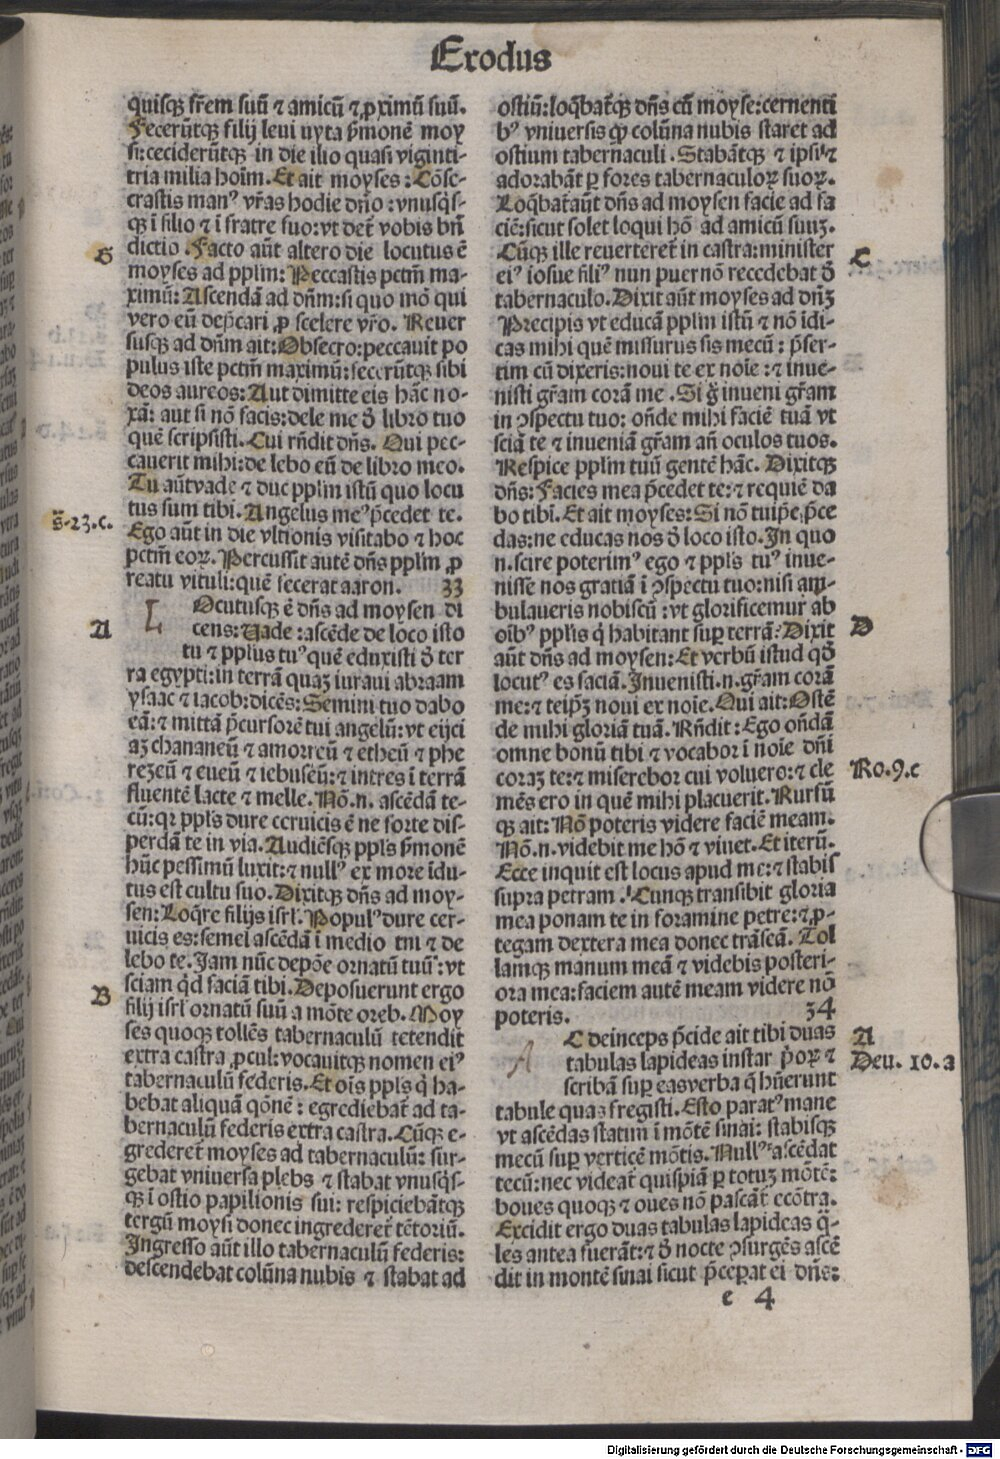 Exodus
quisqꝫ fr̄em suū ⁊ amicū ⁊ ꝓximū suū.
Fecerūtqꝫ filij leui iuxta ẜmonē moy
si: ceciderūtqꝫ in die illo quasi viginti-
tria milia hoīm. Et ait moyses: Cōse-
crastis manꝰ vr̄as hodie dño: vnusqͥs-
qꝫ ī filio ⁊ ī fratre suo: vt det̄ vobis bn̄
dictio. Facto aūt altero die locutus ē
G
moyses ad ppl̄m: Peccastis pctm̄ ma-
ximū: Ascendā ad dn̄m: si quo mō qui
vero eū dep̄cari ꝓ scelere vr̄o. Reuer
susqꝫ ad dn̄m ait: Obsecro: peccauit po
pulus iste pctm̄ maximū: fecerūtqꝫ sibi
deos aureos: Aut dimitte eis hāc no-
xā: aut si nō facis: dele me ð libro tuo
quē scripsisti. Cui rn̄dit dn̄s. Qui pec-
cauerit mihi: delebo eū de libro meo.
Tu aūt vade ⁊ duc ppl̄m istū quo locu
tus sum tibi. Angelus meꝰ p̄cedet te.
s̄.23.c.
Ego aūt in die vltionis visitabo ⁊ hoc
pctm̄ eoꝝ. Percussit autē dn̄s ppl̄m ꝓ
reatu vituli: quē fecerat aaron. 33
L Ocutusqꝫ ē dn̄s ad moysen di
A
cens: Uade: ascēde de loco isto
tu ⁊ pplus tuꝰ quē eduxisti ð ter
ra egypti: in terrā quaꝫ iuraui abraam
ysaac ⁊ iacob: dicēs: Semini tuo dabo
eā: ⁊ mittā p̄cursorē tui angelū: vt eijci
aꝫ chananeū ⁊ amorreū ⁊ etheū ⁊ phe
rezeū ⁊ eueū ⁊ iebuseū: ⁊ intres ī terrā
fluentē lacte ⁊ melle. Nō.n. ascēdā te-
cū: qꝛ ppl̄s dure ceruicis ē ne forte dis-
perdā te in via. Audiēsqꝫ ppl̄s ẜmonē
hūc pessimū luxit: ⁊ nullꝰ ex more īdu-
tus est cultu suo. Dixitqꝫ dn̄s ad moy-
sen: Loq̄re filijs isrl̄. Populꝰ dure cer-
uicis es: semel ascēdā ī medio tui ⁊ de
lebo te. Jam nūc depōe ornatū tuū: vt
sciam qͥd faciā tibi. Deposuerunt ergo
B
filij isrl̄ ornatū suū a mōte oreb. Moy
ses quoqꝫ tollēs tabernaculū tetendit
extra castra ꝓcul: vocauitqꝫ nomen eiꝰ
tabernaculū federis. Et oīs ppl̄s qͥ ha-
bebat aliquā q̄onē: egrediebat̄ ad ta-
bernaculū federis extra castra. Cūqꝫ e-
grederet̄ moyses ad tabernaculū: sur-
gebat vniuersa plebs ⁊ stabat vnusqͥs-
qꝫ ī ostio papilionis sui: respiciebātqꝫ
tergū moysi donec ingrederet̄ tētoriū.
Ingresso aūt illo tabernaculū federis:
descendebat colūna nubis ⁊ stabat ad
ostiū: loq̄bat̄qꝫ dn̄s cū moyse: cernenti
bꝰ vniuersis ꝙ colūna nubis staret ad
ostium tabernaculi. Stabātqꝫ ⁊ ipsi ⁊
adorabāt ꝑ fores tabernaculoꝝ suoꝝ.
Loq̄bat̄ aūt dn̄s ad moysen facie ad fa
ciē: sicut solet loqui hō ad amicū suuꝫ.
Cūqꝫ ille reuerteret̄ in castra: minister
C
eiꝰ iosue filiꝰ nun puer nō recedebat ð
tabernaculo. Dixit aūt moyses ad dn̄ꝫ
Precipis vt educā ppl̄m istū ⁊ nō īdi-
cas mihi quē missurus sis mecū: p̄ser-
tim cū dixeris: noui te ex noīe: ⁊ inue-
nisti gr̄am corā me. Si ḡ inueni gr̄am
in ꝯspectu tuo: on̄de mihi faciē tuā vt
sciā te ⁊ inueniā gr̄am an̄ oculos tuos.
Respice ppl̄m tuū gentē hāc. Dixitqꝫ
dn̄s: Facies mea p̄cedet te: ⁊ requiē da
bo tibi. Et ait moyses: Si nō tuip̄e p̄ce
das: ne educas nos ð loco isto. In quo
n. scire poterimꝰ ego ⁊ ppl̄s tuꝰ inue-
nisse nos gratiā ī ꝯspectu tuo: nisi am-
bulaueris nobiscū: vt glorificemur ab
oībꝰ ppl̄is qͥ habitant suꝑ terrā: Dixit
D
aūt dn̄s ad moysen: Et verbū istud qð
locutꝰ es faciā. Inuenisti.n. gr̄am corā
me: ⁊ teip̄ꝫ noui ex noīe. Qui ait: Ostē
de mihi gloriā tuā. Rn̄dit: Ego on̄dā
omne bonū tibi ⁊ vocabor ī noīe dn̄i
coraꝫ te: ⁊ miserebor cui voluero: ⁊ cle
Ro.9.c
mēs ero in quē mihi placuerit. Rursū
qꝫ ait: Nō poteris videre faciē meam.
Nō.n. videbit me hō ⁊ viuet. Et iterū.
Ecce inquit est locus apud me: ⁊ stabis
supra petram. Cunqꝫ transibit gloria
mea ponam te in foramine petre: ⁊ ꝓ-
tegam dextera mea donec trāseā. Tol
lamqꝫ manum meā ⁊ videbis posteri-
ora mea: faciem autē meam videre nō
poteris. 34
A C deinceps p̄cide ait tibi duas
A
tabulas lapideas instar p̄oꝝ ⁊
Deu. 10.a
scribā suꝑ eas verba q̄ hn̄erunt
tabule quas fregisti. Esto paratꝰ mane
vt ascēdas statim ī mōtē sinai: stabisqꝫ
mecū suꝑ verticē mōtis. Nullꝰ ascēdat
tecū: nec videat̄ quispiā ꝑ totuꝫ mōtē:
boues quoqꝫ ⁊ oues nō pascāt̄ ecōtra.
Excidit ergo duas tabulas lapideas q̄-
les antea fuerāt: ⁊ ð nocte ꝯsurgēs ascē
dit in montē sinai sicut p̄ceperat ei dn̄s:
e 4
Digitalisierung gefördert durch die Deutsche Forschungsgemeinschaft - DFG